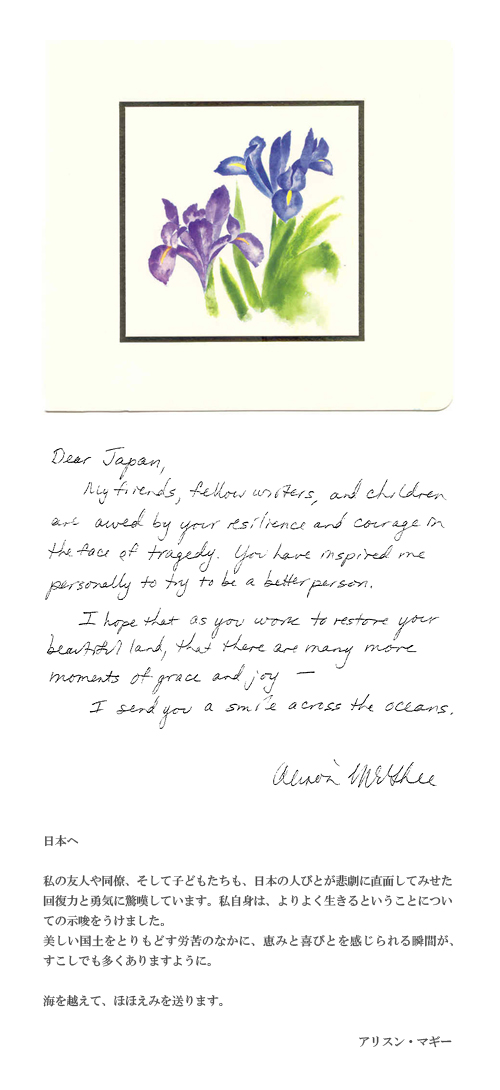 Dear Japan,
My friends, fellow writers, and children
are awed by your resilience and courage in
the face of tragedy. You have inspired me
personally to try to be a better person.
I hope that as you work to restore your
beautiful land, that there are many more
moments of grace and joy —
I send you a smile across the oceans.
Alison McGhee
日本へ
私の友人や同僚、そして子どもたちも、日本の人びとが悲劇に直面してみせた
回復力と勇気に驚嘆しています。私自身は、よりよく生きるということについ
ての示唆をうけました。
美しい国土をとりもどす労苦のなかに、恵みと喜びとを感じられる瞬間が、
すこしでも多くありますように。
海を越えて、ほほえみを送ります。
アリスン・マギー